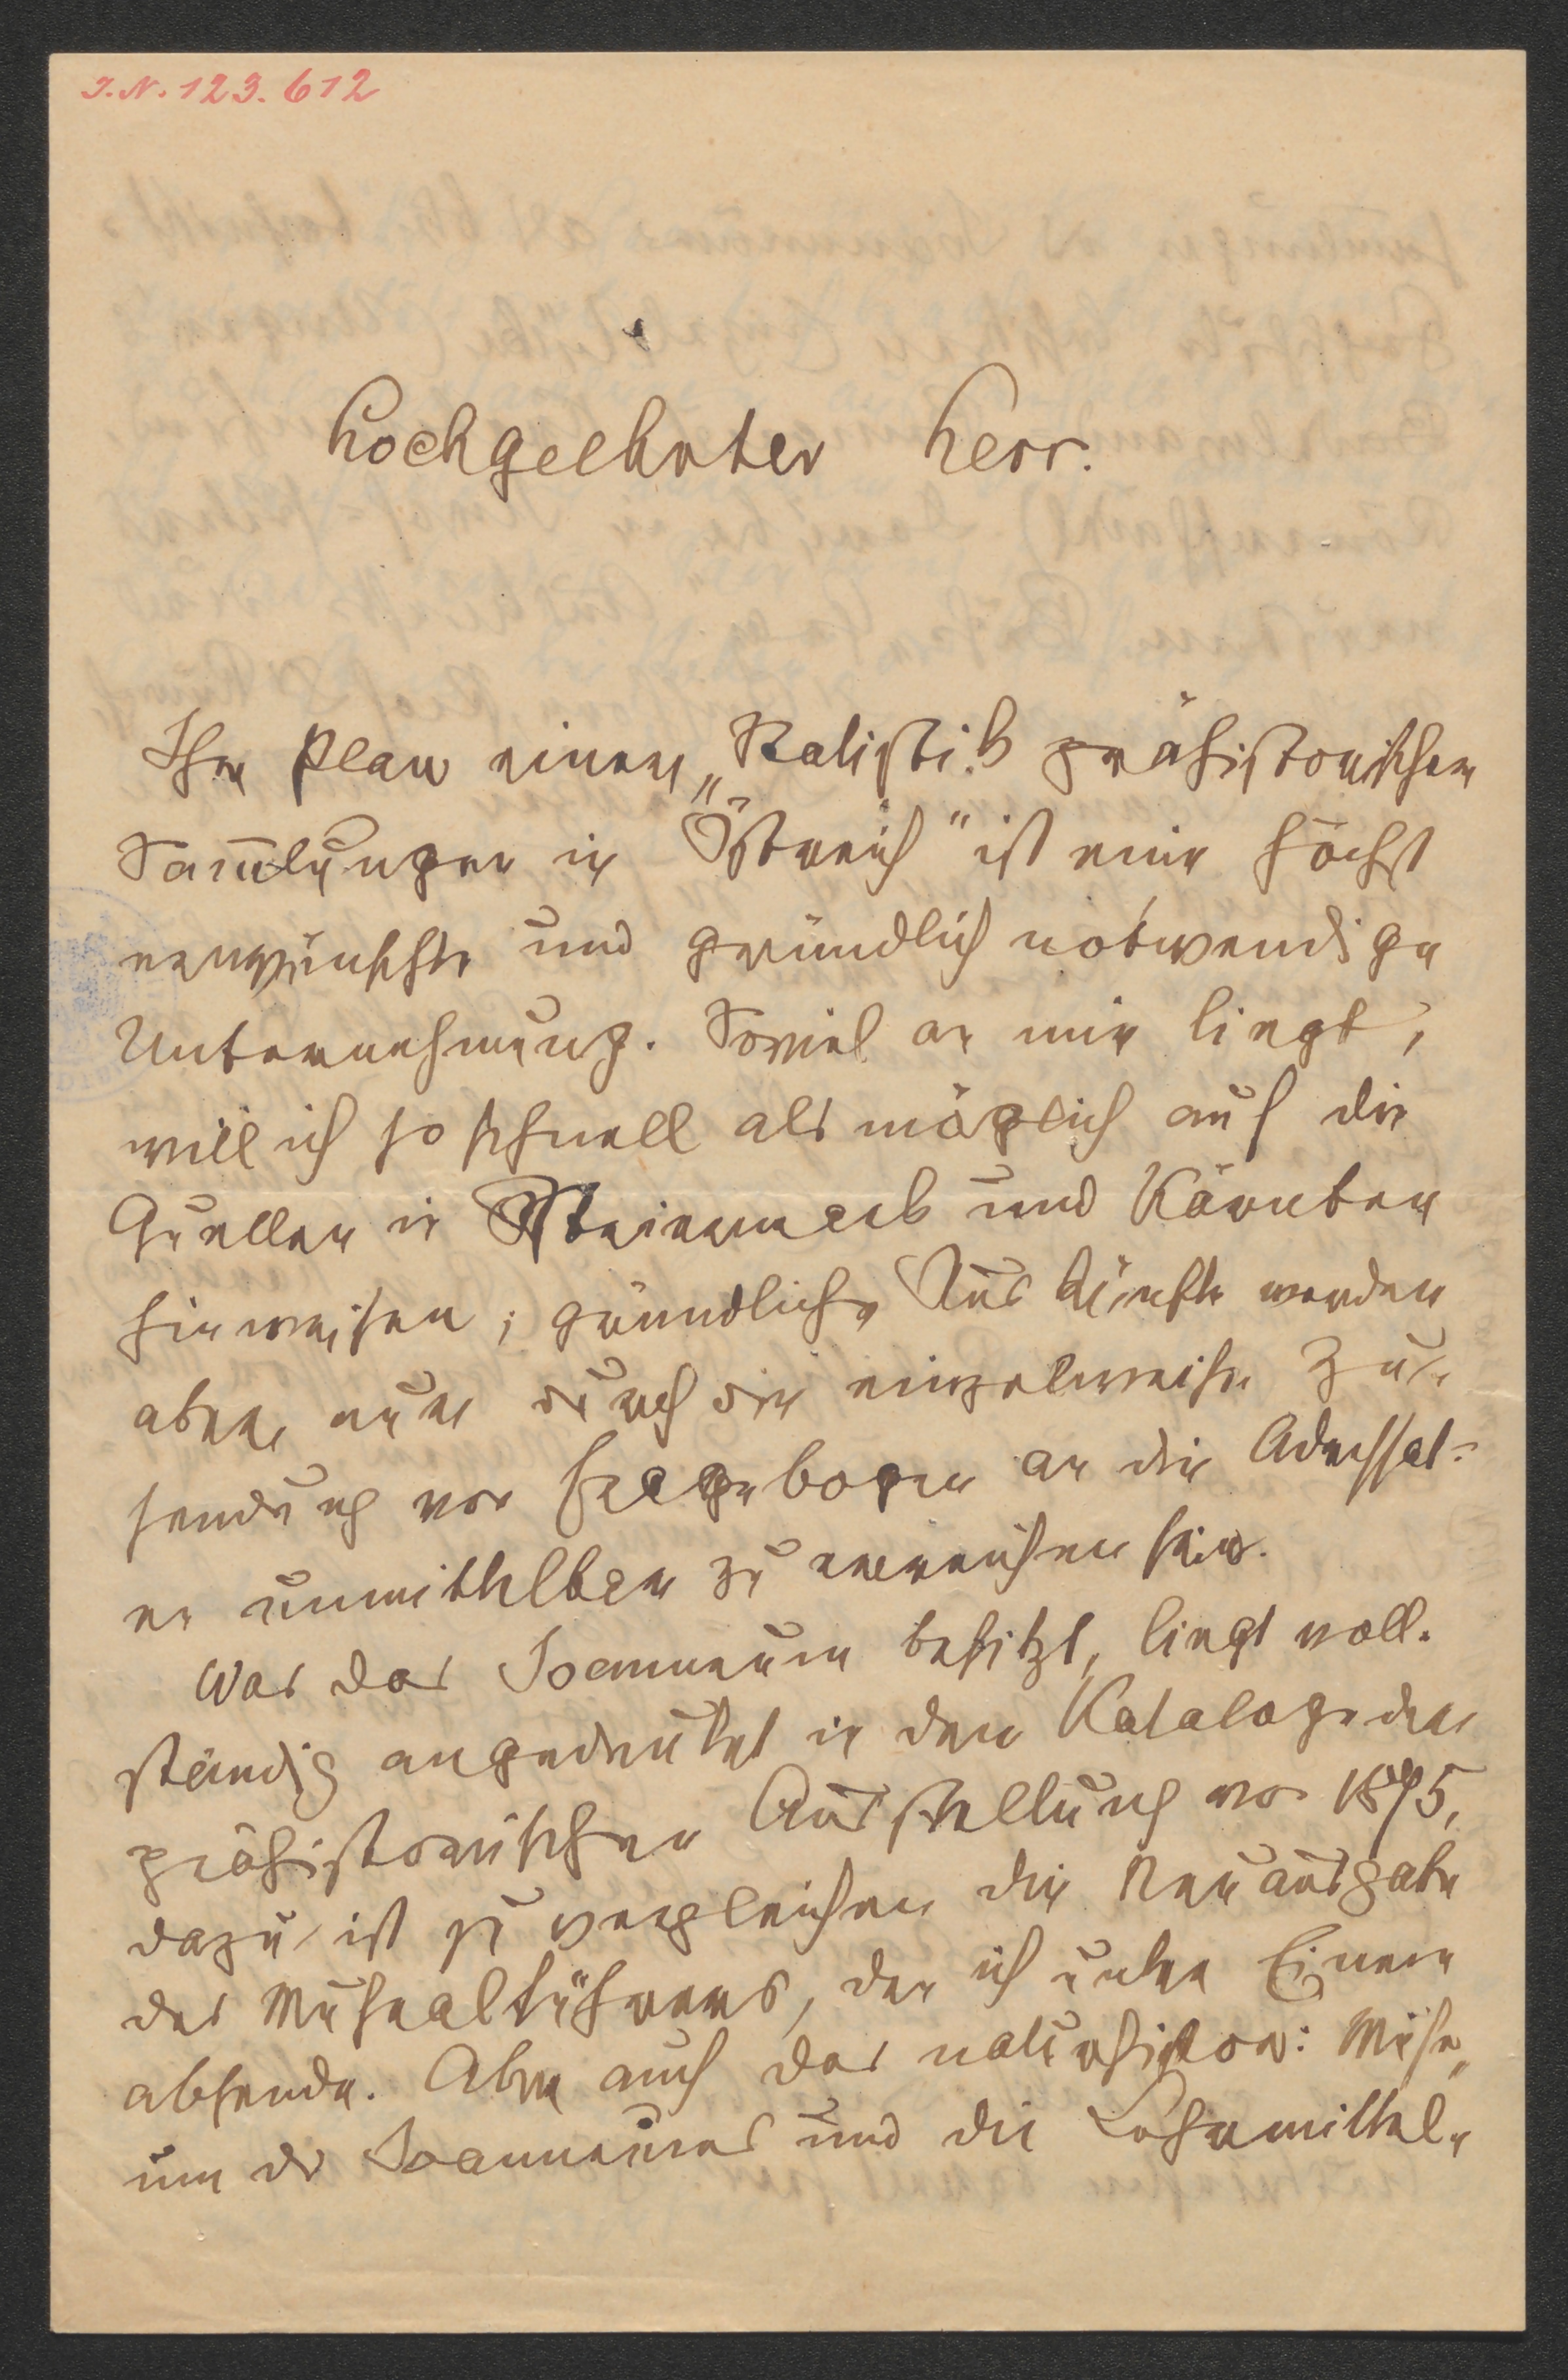 I.N. 123.612
Hochgeehrter Herr.
Ihr Plan einer „Statistik prähistorischer
Sam̄lungen in Östreich" ist eine höchst
erwünschte und gründlich notwendige
Unternehmung. Soviel an mir liegt,
will ich so schnell als möglich auf die
Quellen in Steiermark und Kärnten
hinweisen; gründliche Auskünfte werden
aber nur durch die einzelweise Zu-
sendung von Fragebogen an die Adressat-
en unmittelbar zu erreichen sein.
Was das Joanneum besitzt, liegt voll-
ständig angedeutet in dem Kataloge der
prähistorischen Ausstellung von 1875,
dazu ist zu vergleichen die Neuausgabe
des Musealführers, den ich unter Einem
absende. Aber auch das naturhistor: Muse-
um des Joanneums und die Lehrmittel-